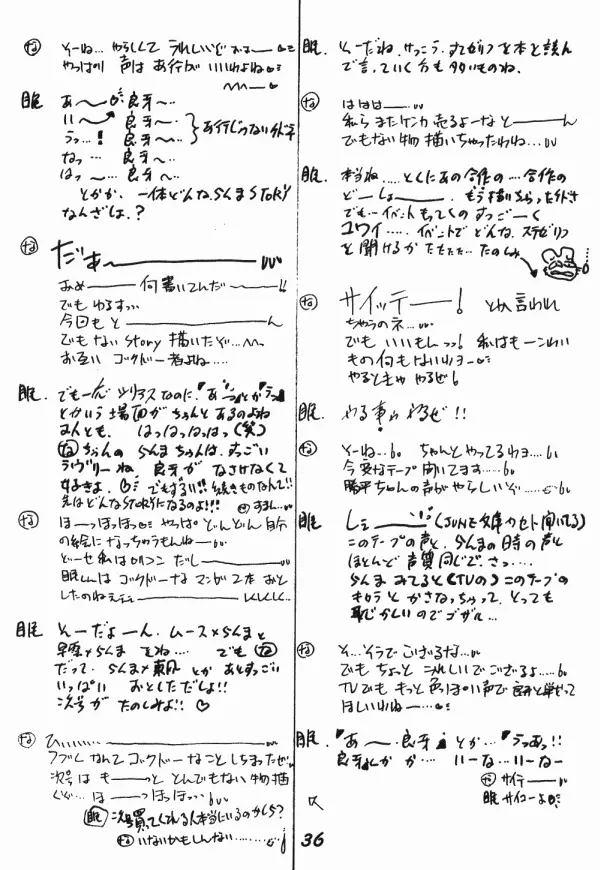 な そーね… やらしくて うれしいけど おほー
やっぱり 声は あ行が いいわよね
眠 あ〜 良牙〜‥
い〜 良牙〜‥
うっ…! 良牙〜‥
なっ … 良牙〜‥
はっ 〜… 良牙〜‥
あ行じゃない
とかか、一体どんならんま STORY
なんざしょ.?
な だぁーーー
あぁーー何書いてんだーー!!
でも ゆるすっ‥
今回も とーーん
でもない story 描いたぞ…
お互い ゴクドー者よね….
眠. でも シリアスなのに、『あっ』とか『うっ』
とかいう場面が ちゃんと あるのよね
なんとも、 はっはっはっはっ (笑)
なちゃんの らんまちゃんは、すっごい
ラヴリーね、 良牙が なさけなくて
好きよ、 でもずるい!! 続きものなんて!!
先はどんなSTORYになるのよ!!!
な ほーっほっほっ やっぱ どんどん 自分
の絵に なっちゃうもんねー
どーせ 私は ロリコン だしーー
眠くんは ゴクドーな マンガ 2本 おと
したのねぇ
眠 そーだよーん、ムース×らんまと
早雲×らんま でね… でも な
だって、らんま×東風 とか あとすっごい
いっぱい おとしただしょ!!
次号が たのしみよ!! ♡
な ひぃ……ーー
つづくなんて ゴクドーなこと しちまったぜ
次号は もーーっと とんでもない物描
くぞ… ほーーっほっほ…
眠 次号買ってくれる人本当にいるのかしら?
な いないかもしんない………
眠. そーだね、けっこう、すてゼリフを本を読ん
で言っていく方も多いものね、
な ははは…‥
私ら またケンカ売るよーな とーーん
でもない物 描いちゃったわね…
眠. 本当ね….. とくにあの合作の … 合作の
どーしよーー、 もう描いちゃった
でも… イベント もってくの すっごーく
コワイ….. イベントで どんな、ステゼリフ
を 聞けるか たたたた… たのしみ
な サイッテーー! とか 言われ
ちゃうのネ…
でも いいもんっっ! 私はもーこわい
もの何もないわョー
やるときゃ やるぜ!
眠. やる事ゎ やるぜ!!
な そーね‥ ちゃんと やってるわョ….
今変なテープ 聞いてます…..
勝平ちゃんの声が やらしいぞ….
眠 しぇーー (JUNE文庫カセット聞いてる)
このテープの声と、らんまの時の声と
ほとんど 声質 同じで、さっ…..
らんま みてると (TVの) このテープの
キャラと かさなっちゃって、とっても
恥ずかしいのでゴザル…
な そ…そうでござるな…
でも ちょっと うれしいでござるよ…..
TVでも もっと 色っぽい声で 良牙と
ほしいわねー…
眠. 『あ〜、良牙』とか…『うっあっ!!
良牙くん か か… いーな… いーなー
な サイテーー
眠 サイコーよ
36